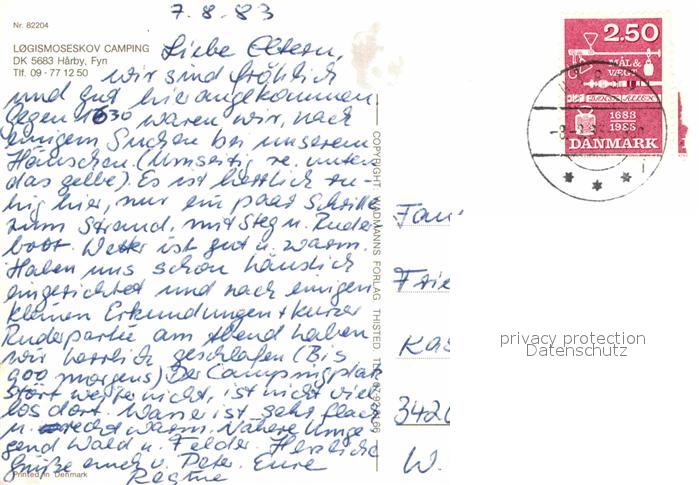 7.8.83
Nr. 82204
LØGISMOSESKOV CAMPING
DK 5683 Hårby, Fyn
Tlf. 09-77 12 50
Liebe Eltern,
wir sind fröhlich
und gut hier angekommen.
Gegen 1630 waren wir, nach
einigem Suchen bei unserem
Häuschen. (Umseitig re. unten
das gelbe). Es ist herrlich ru-
hig hier, nur ein paar Schritte
zum Strand, mit Steg u. Ruder
boot. Wetter ist gut u. warm.
Haben uns schon häuslich
eingerichtet und nach einigen
kleinen Erkundungen + kurzer
Ruderpartie am Abend haben
wir herrlich geschlafen (Bis
900 morgens) Der Campingplatz
stört weiter nicht, ist nicht viel
los dort. Wasser ist sehr flach
u. recht warm. Nähere Umge
gend Wald u. Felder. Herzliche
Grüße auch v. Peter. Eure
Regine
Printed in Denmark
COPYRIGHT: WADMANNS FORLAG THISTED
2.50
MÅL &
VÆGT
1683
1983
DANMARK
Fam
Frie
Kas
3420
W.
privacy protection
Datenschutz